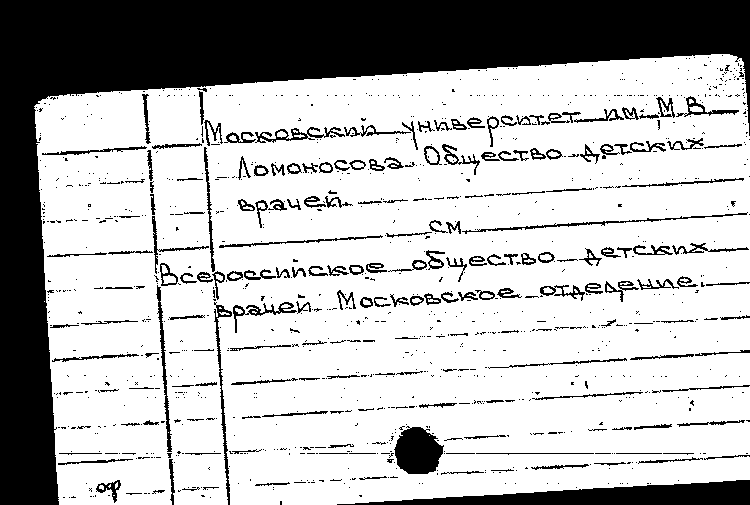 Московский университет им. М.В.
Ломоносова. Общество детских
врачей.
см.
Всероссийское общество детских
врачей. Московское отделение.
оф